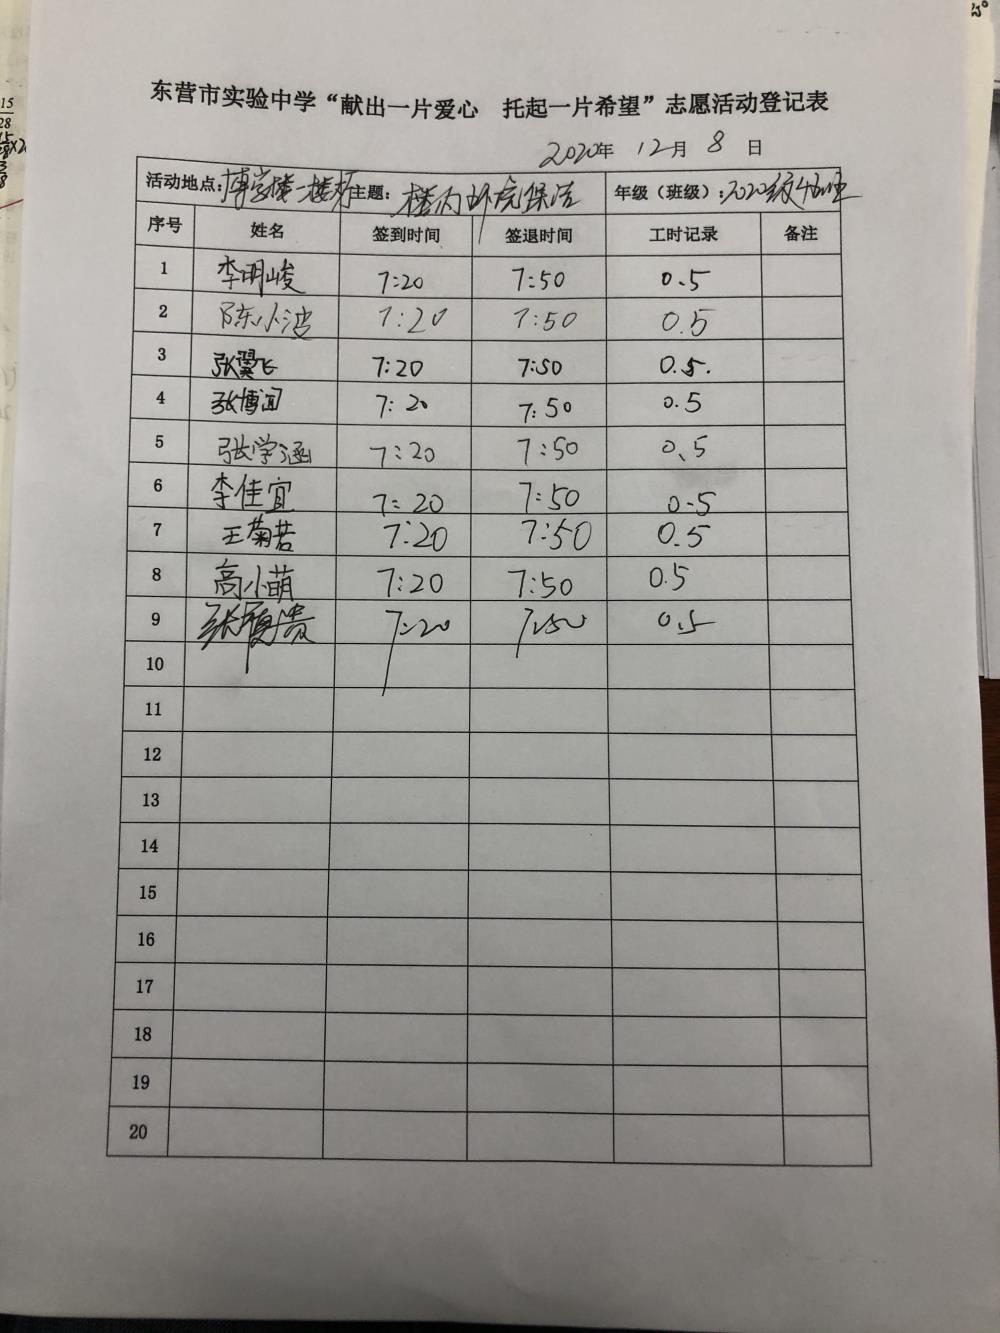 东营市实验中学“献出一片爱心 托起一片希望”志愿活动登记表
2020年 12月 8 日
活动地点: 主题: 楼内环境保洁 年级（班级）: 2020级4
序号 姓名 签到时间 签退时间 工时记录 备注
1 李明峻 7:20 7:50 0.5
2 陈小波 7:20 7:50 0.5
3 张翼飞 7:20 7:50 0.5.
4 张博闻 7:20 7:50 0.5
5 张学涵 7:20 7:50 0.5
6 李佳宜 7:20 7:50 0.5
7 王菊若 7:20 7:50 0.5
8 高小萌 7:20 7:50 0.5
9 张 贵 7:20 7:50 0.5
10
11
12
13
14
15
16
17
18
19
20